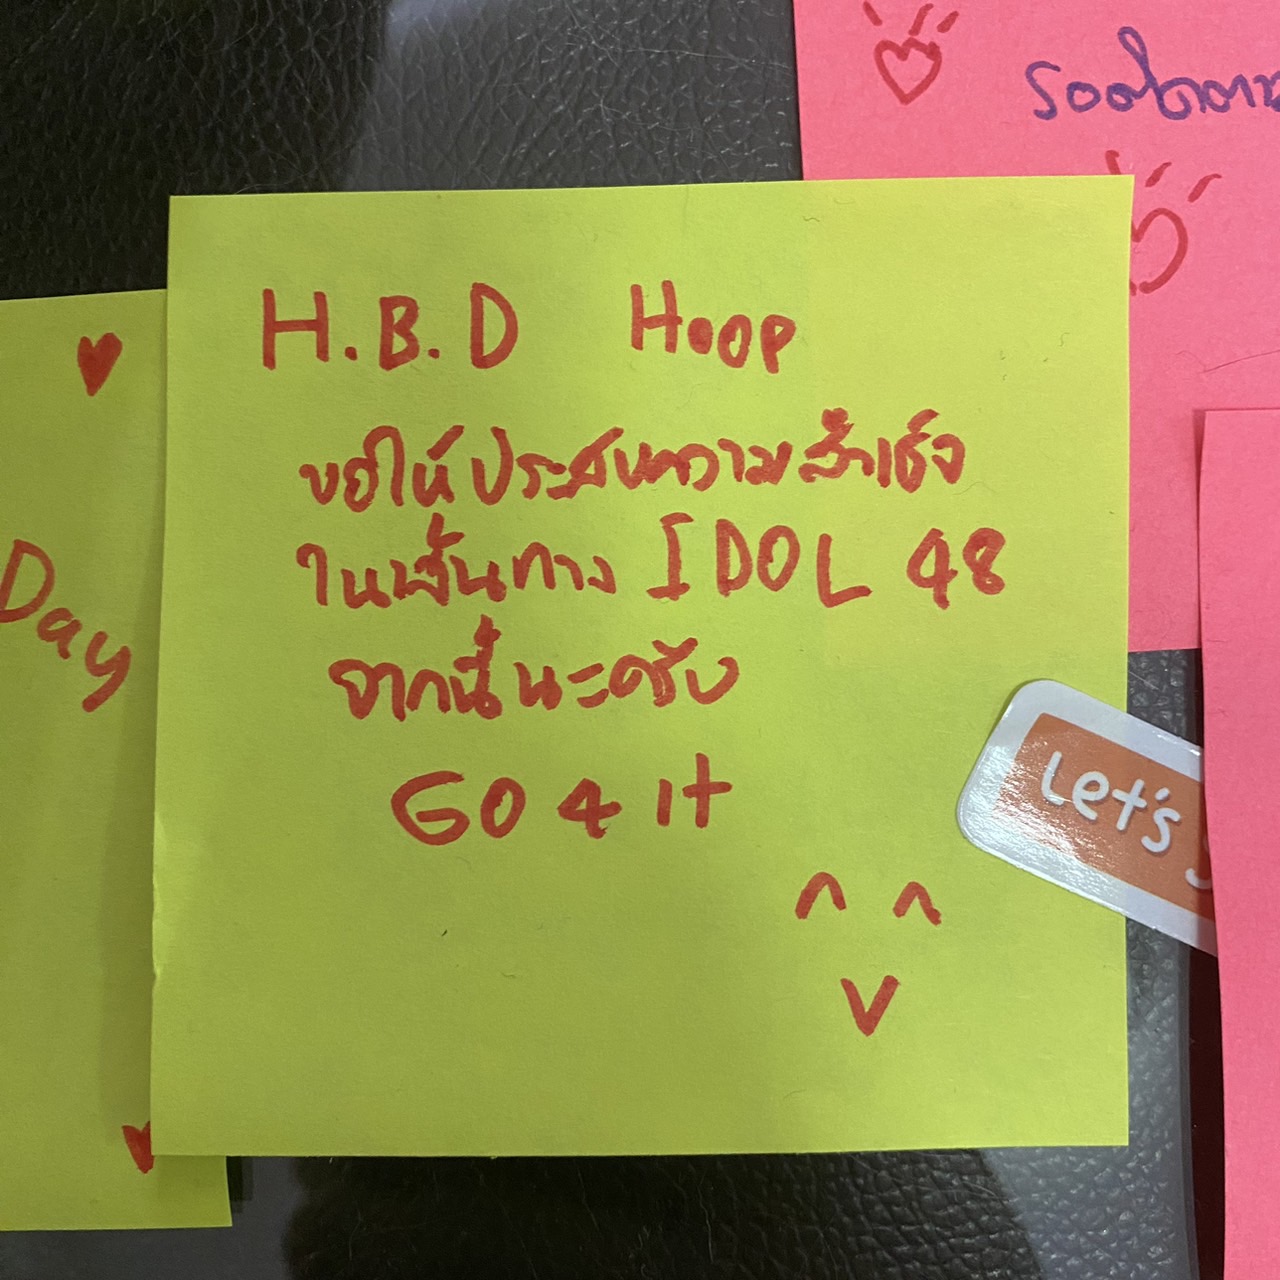 H.B.D Hoop
ขอให้ประสบความสำเร็จ
ในเส้นทาง IDOL 48
จากนี้นะครับ
GO 4 it
^ ^
v
Day
Let's